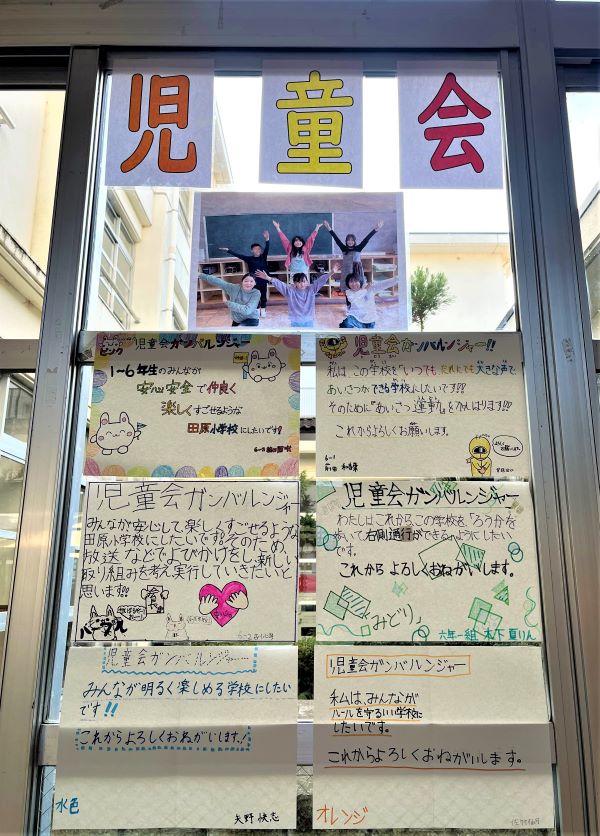 児童会
ピンク
児童会ガンバルンジャー
1~6年生のみんなが
安心安全で仲良く
楽しくすごせるような
田原小学校にしたいです!
児童会ガンバルンジャー!!
私は、この学校を「いつでもだれにでも大きな声で
あいさつができる学校にしたいです!!!
そのために『あいさつ運動』をがんばります!!!
これからよろしくお願いします。
6-1
児童会ガンバルンジャー
みんなが安心して楽しくすごせるような
田原小学校にしたいです。そのため、
放送などでよびかけをし、新しい
取り組みを考え実行していきたいと
思います!!!
児童会ガンバルンジャー
わたしはこれからこの学校を「ろうかを
歩いて右側通行ができる」ようにしたい
です。
これからよろしくおねがいします。
「みどり」
六年一組 木下 夏りん
児童会ガンバルンジャー……
みんなが明るく楽しめる学校にしたい
です!!
これからよろしくおねがいします!
水色
児童会ガンバルンジャー
私は、みんなが
ルールを守るいい学校に
したいです。
これからよろしくおねがいします。
オレンジ